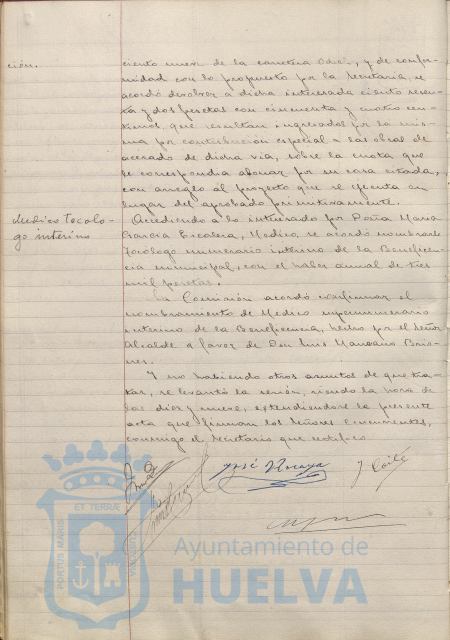 ción.
ciento nueve de la carretera Odiel, y de confor-
midad con lo propuesto por la Secretaría, se
acordó devolver a dicha interesada ciento sesen-
ta y dos pesetas con cincuenta y cuatro cen-
timos, que resultan ingresados por la mis-
ma por contribución especial a las obras de
acerado de dicha vía, sobre la cuota que
le correspondia abonar por su casa citada,
con arreglo al proyecto que se ejecuta en
lugar del aprobado primitivamente.
Medico Tocolo-
go interino
Accediendo a lo interesado por Doña Maria
Garcia Escalera, Medico, se acordó nombrarle
Tocólogo numerario interino de la Beneficen-
cia municipal, con el haber anual de tres
mil pesetas.
La Comisión acordó confirmar el
nombramiento de Medico supernumerario
interino de la Beneficencia, hecho por el Señor
Alcalde a favor de Don Luis Manzano Brio-
nes.
Y no habiendo otros asuntos de que tra-
tar, se levantó la sesión, siendo la hora de
las diez y nueve, extendiendose la presente
acta que firman los Señores Concurrentes,
conmigo el Secretario que certifico
José
PORTUS MARIS
ET TERRÆ
Ayuntamiento de
HUELVA